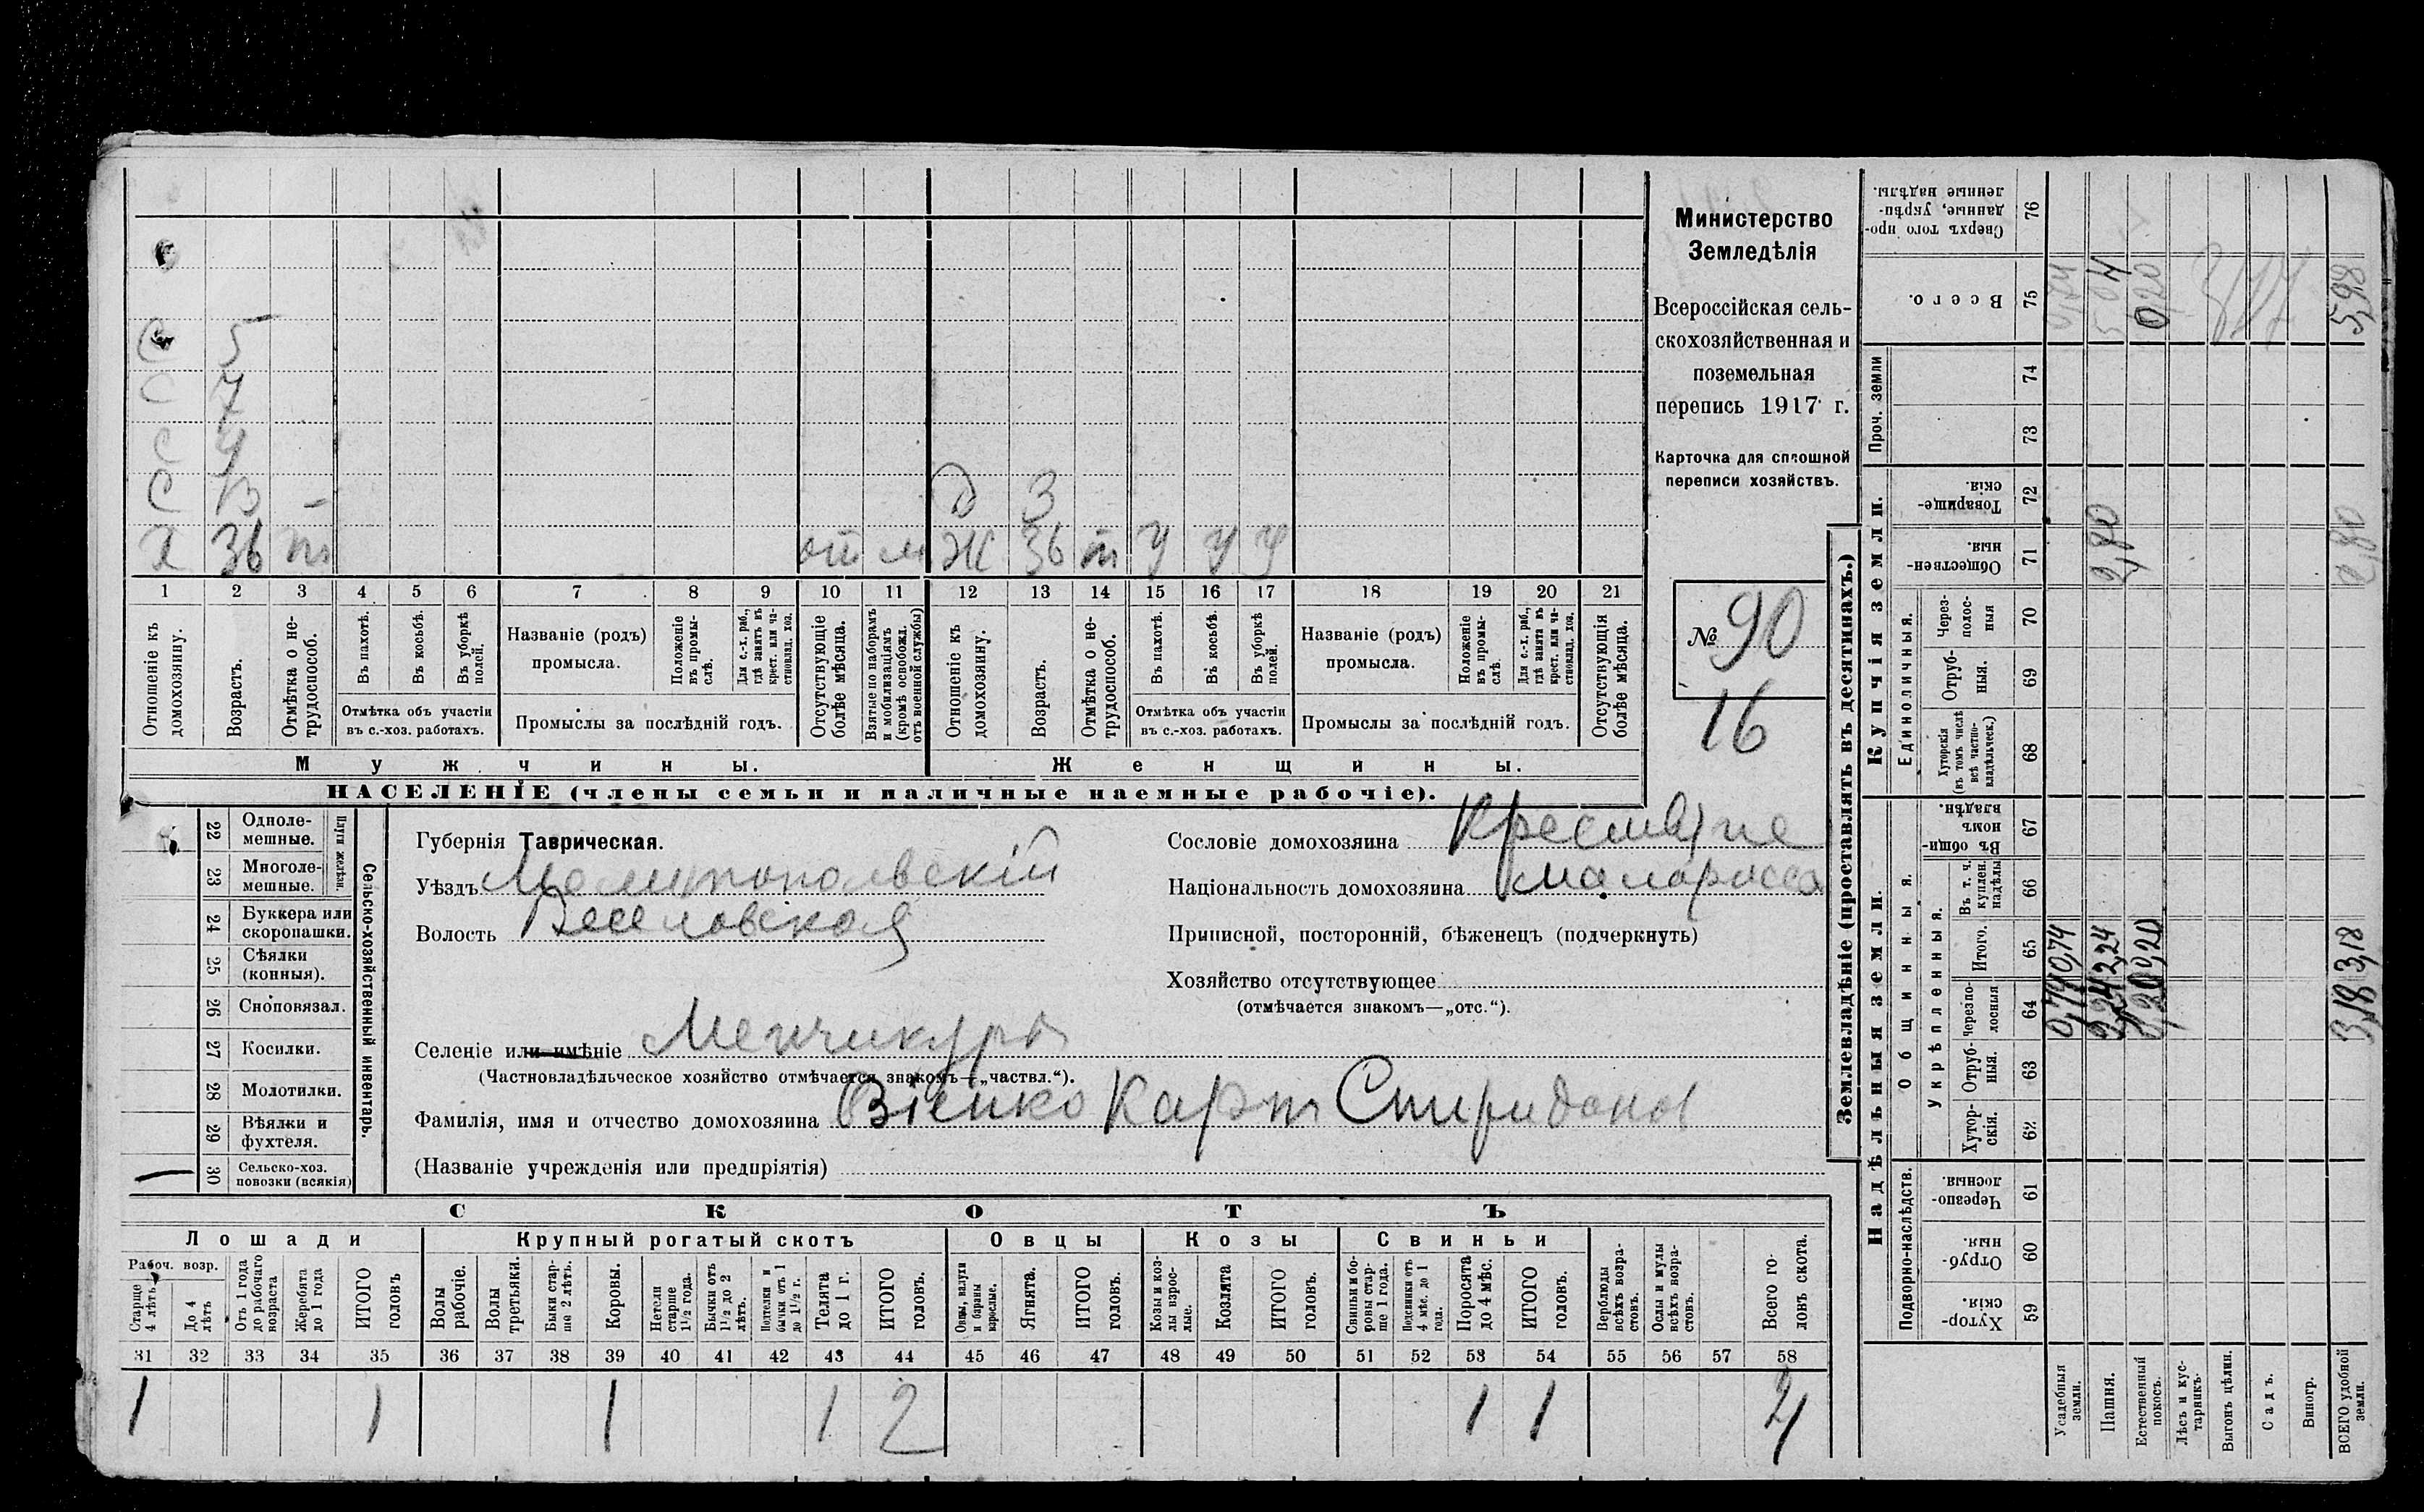 С 5
С 7
С 9
С 13 - Д 3
Х 36 т от м Ж 36 т у у у
1 2 3 4 5 6 7 8 9 10 11 12 13 14 15 16 17 18 19 20 21
Отношеніе къ домохозяину.
Возрастъ.
Отмѣтка о не-трудоспособ.
Въ пахотѣ.
Въ косьбѣ.
Въ уборкѣ полей.
Отмѣтка объ участіи
въ с.-хоз. работахъ.
Названіе (родъ)
промысла.
Положеніе въ промы-слѣ.
Для с.-х. раб., гдѣ занятъ въ крест. или ча-стновлад. хоз.
Промыслы за послѣдній годъ.
Отсутствующіе болѣе мѣсяца.
Взятые по наборамъ и мобилизаціямъ (кромѣ освобожд. отъ военной службы)
Отношеніе къ домохозяину.
Возрастъ.
Отмѣтка о не-трудоспособ.
Въ пахотѣ.
Въ косьбѣ.
Въ уборкѣ полей.
Отмѣтка объ участіи
въ с.-хоз. работахъ.
Названіе (родъ)
промысла.
Положеніе въ промы-слѣ.
Для с.-х. раб., гдѣ занята въ крест. или ча-стновлад. хоз.
Промыслы за послѣдній годъ.
Отсутствующія болѣе мѣсяца.
Мужчины. Женщины.
НАСЕЛЕНІЕ (члены семьи и наличные наемные рабочіе).
Министерство
Земледѣлія
Всероссійская сель-
скохозяйственная и
поземельная
перепись 1917 г.
Карточка для сплошной
переписи хозяйствъ.
№ 90
16
22 Одноле-мешные.
23 Многоле-мешные.
Плуги желѣзн.
24 Буккера или скоропашки.
25 Сѣялки (конныя).
26 Сноповязал.
27 Косилки.
28 Молотилки.
29 Вѣялки и фухтеля.
30 Сельско-хоз. повозки (всякія)
Сельско-хозяйственный инвентарь.
Губернія Таврическая.
Уѣздъ Мелитопольскій
Волость Веселовская
Селеніе или имѣніе Менчикуръ
(Частновладѣльческое хозяйство отмѣчается знакомъ—„частвл.“).
Фамилія, имя и отчество домохозяина Карп Спиридонов
(Названіе учрежденія или предпріятія)
Сословіе домохозяина
Національность домохозяина малоросса
Приписной, посторонній, бѣженецъ (подчеркнуть)
Хозяйство отсутствующее
(отмѣчается знакомъ—„отс.“).
СКОТЪ
Лошади Крупный рогатый скотъ Овцы Козы Свиньи
Рабоч. возр.
Старше 4 лѣтъ
До 4 лѣтъ
Отъ 1 года до рабочаго возраста
Жеребята до 1 года
ИТОГО головъ
Волы рабочіе.
Волы третьяки.
Быки стар-ше 2 лѣтъ.
Коровы.
Нетели старше 1½ года.
Бычки отъ 1½ до 2 лѣтъ.
Подтелки и бычки отъ 1 до 1½ г.
Телята до 1 г.
ИТОГО головъ.
Овцы, валухи и бараны взрослые.
Ягнята.
ИТОГО головъ.
Козы и коз-лы взрос-лые.
Козлята
ИТОГО головъ.
Свиньи и бо-ровы стар-ше 1 года.
Подсвинки отъ 4 мѣс. до 1 года.
Поросята до 4 мѣс.
ИТОГО головъ.
Верблюды всѣхъ возра-стовъ.
Ослы и мулы всѣхъ возра-стовъ.
Всего го-ловъ скота.
31 32 33 34 35 36 37 38 39 40 41 42 43 44 45 46 47 48 49 50 51 52 53 54 55 56 57 58
1 1 1 1 2 1 1 4
Землевладѣніе (проставлять въ десятинахъ.)
Надѣльныя земли. Купчія земли. Проч. земли
Подворно-наслѣдств.
Общинныя.
Укрѣпленныя.
Единоличныя.
Хутор-скія. 59
Отруб-ныя. 60
Черезпо-лосныя. 61
Хутор-скія. 62
Отруб-ныя. 63
Черезпо-лосныя 64
Итого. 65
Въ т. ч. куплен. надѣлы 66
Въ общин-номъ владѣн. 67
Хуторскія (въ томъ числѣ всѣ частно-владѣльческ.) 68
Отруб-ныя. 69
Через-полос-ныя 70
Обществен-ныя. 71
Товарище-скія. 72
73
74
Всего. 75
Сверхъ того про-данные, укрѣп-ленные надѣлы. 76
Усадебныя земли. 0,74 0,74 0,74
Пашня. 2,24 2,24 2,80 5,04
Естественный покосъ. 0,20 0,20 0,20
Лѣсъ и кус-тарникъ.
Выгонъ цѣлин.
Садъ.
Виногр.
ВСЕГО удобной земли. 3,18 3,18 2,80 5,98